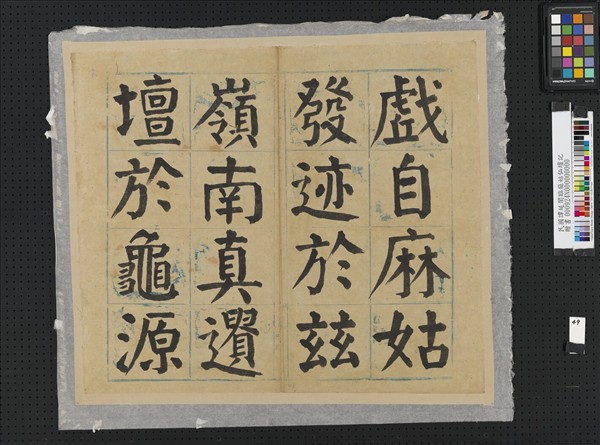 戲自麻姑
發迹於茲
嶺南真遺
壇於龜源
49